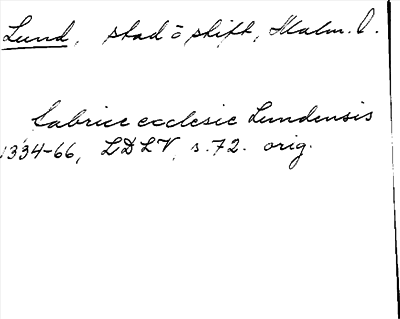 Lund, stad o stift, Malm. l.
fabrice ecclesie Lundensis
1334-66, LDLV, s. 72. orig.